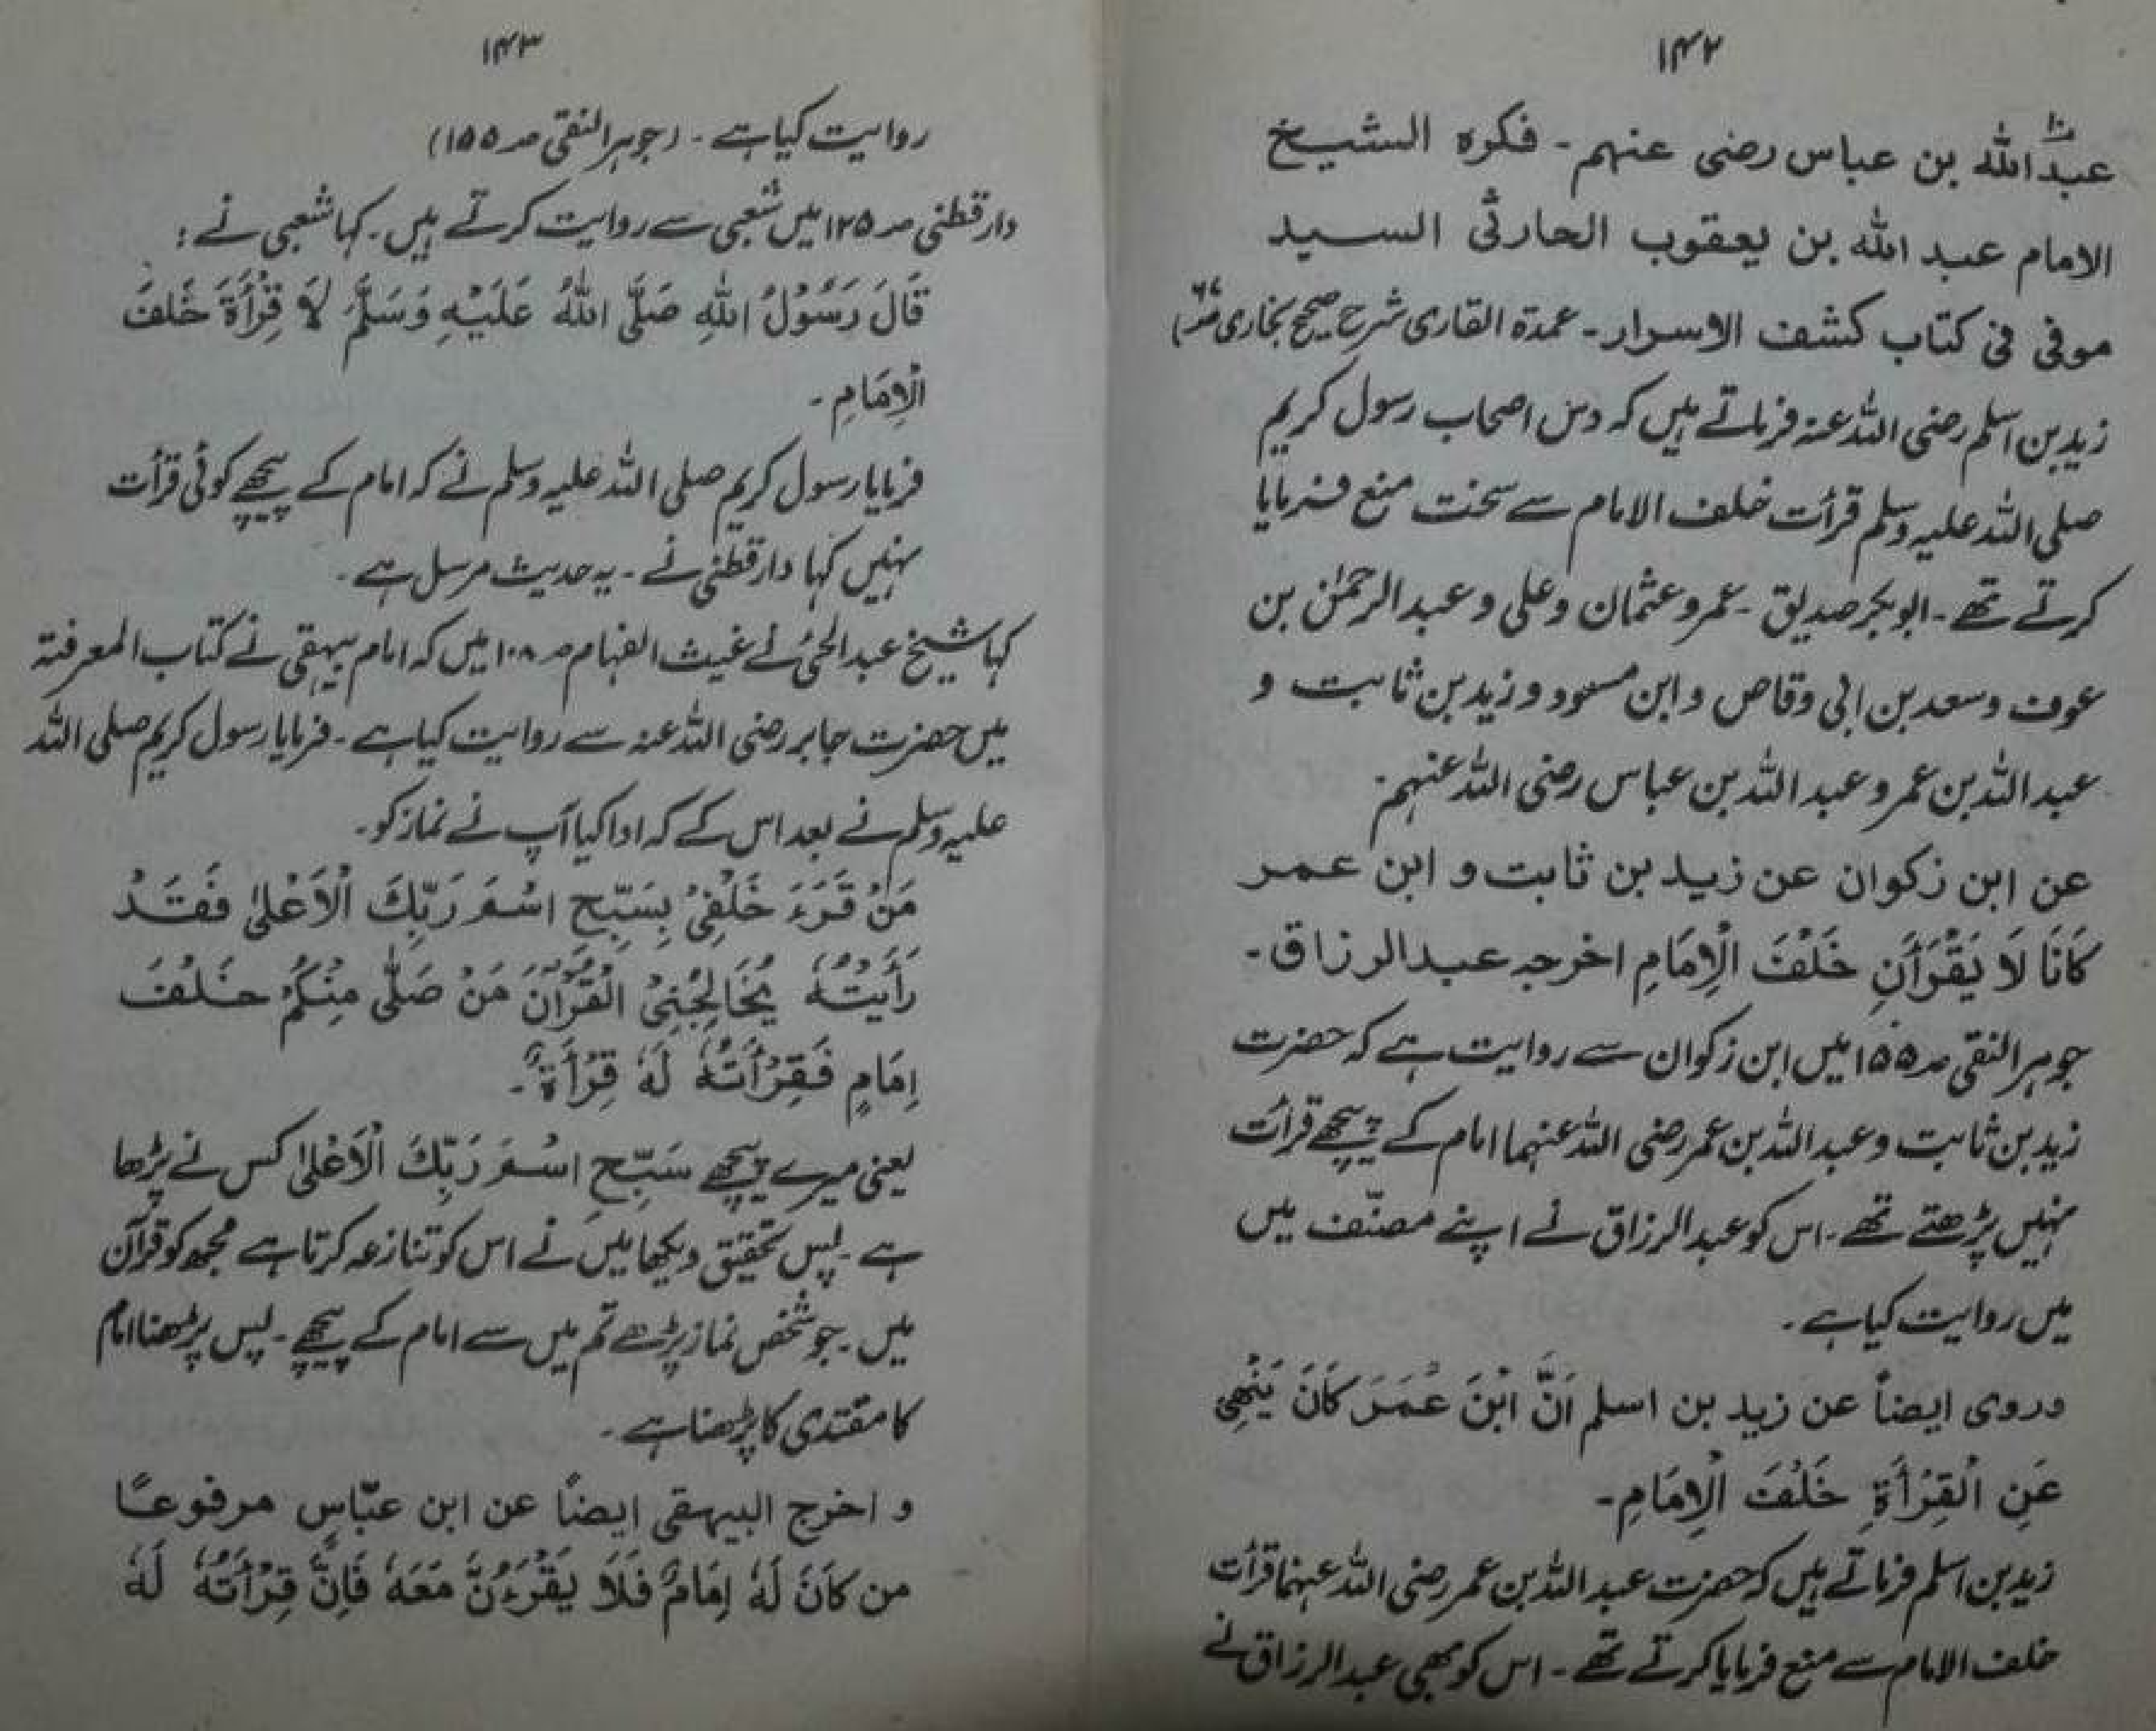 ۱۴۲
عبداللہ بن عباس رضی عنہم - فکرہ الشیخ
الامام عبد اللہ بن یعقوب الحارثی السید
موفی فی کتاب کشف الاسرار - عمدۃ القاری شرح صحیح بخاری
زید بن اسلم رضی اللہ عنہ فرماتے ہیں کہ دس اصحاب رسول کریم
صلی اللہ علیہ وسلم قرأت خلف الامام سے سخت منع فرمایا
کرتے تھے - ابوبکر صدیق - عمر و عثمان و علی و عبد الرحمٰن بن
عوف و سعد بن ابی وقاص و ابن مسعود و زید بن ثابت و
عبد اللہ بن عمر و عبد اللہ بن عباس رضی اللہ عنہم -
عن ابن زکوان عن زید بن ثابت و ابن عمر
كَانَا لَا يَقْرَأَنِ خَلْفَ الْاِمَامِ اخرجہ عبدالرزاق -
جوہر النقی صـ ۱۵۵ میں ابن زکوان سے روایت ہے کہ حضرت
زید بن ثابت و عبد اللہ بن عمر رضی اللہ عنہما امام کے پیچھے قرأت
نہیں پڑھتے تھے - اس کو عبد الرزاق نے اپنے مصنّف میں
میں روایت کیا ہے -
وروی ایضاً عن زید بن اسلم اَنَّ ابْنَ عُمَرَ كَانَ يَنْهٰى
عَنِ الْقِرْأَةِ خَلْفَ الْاِمَامِ -
زید بن اسلم فرماتے ہیں کہ حضرت عبد اللہ بن عمر رضی اللہ عنہما قرأت
خلف الامام سے منع فرمایا کرتے تھے - اس کو بھی عبد الرزاق نے
۱۴۳
روایت کیا ہے - (جوہر النقی صـ ۱۵۵)
دارقطنی صـ ۱۲۵ میں شعبی سے روایت کرتے ہیں - کہا شعبی نے :
قَالَ رَسُوْلُ اللهِ صَلَّى اللهُ عَلَيْهِ وَسَلَّمَ لَا قِرْأَةَ خَلْفَ
الْاِمَامِ -
فرمایا رسول کریم صلی اللہ علیہ وسلم نے کہ امام کے پیچھے کوئی قرأت
نہیں کہا دارقطنی نے - یہ حدیث مرسل ہے -
کہا شیخ عبد الحیٔ نے غیث الفہام صـ ۱۰۸ میں کہ امام بیہقی نے کتاب المعرفتہ
میں حضرت جابر رضی اللہ عنہ سے روایت کیا ہے - فرمایا رسول کریم صلی اللہ
علیہ وسلم نے بعد اس کے کہ ادا کیا آپ نے نماز کو -
مَنْ قَرَءَ خَلْفِىْ بِسَبِّحِ اسْمَ رَبِّكَ الْاَعْلٰى فَقَدْ
رَأَيْتُهٗ يُخَالِجُنِىْ الْقُرْاٰنَ مَنْ صَلّٰى مِنْكُمْ خَلْفَ
اِمَامٍ فَقِرْأَتُهٗ لَهٗ قِرْأَةٌ -
یعنی میرے پیچھے سَبِّحِ اسْمَ رَبِّكَ الْاَعْلٰى کس نے پڑھا
ہے - پس تحقیق دیکھا میں نے اس کو تنازعہ کرتا ہے مجھ کو قرآن
میں - جو شخص نماز پڑھے تم میں سے امام کے پیچھے - پس پڑھنا امام
کا مقتدی کا پڑھنا ہے -
و اخرج البیہقی ایضاً عن ابن عبّاسٍ مرفوعًا
من كَانَ لَهٗ اِمَامٌ فَلَا يَقْرَءَنَّ مَعَهٗ فَاِنَّ قِرْأَتَهٗ لَهٗ